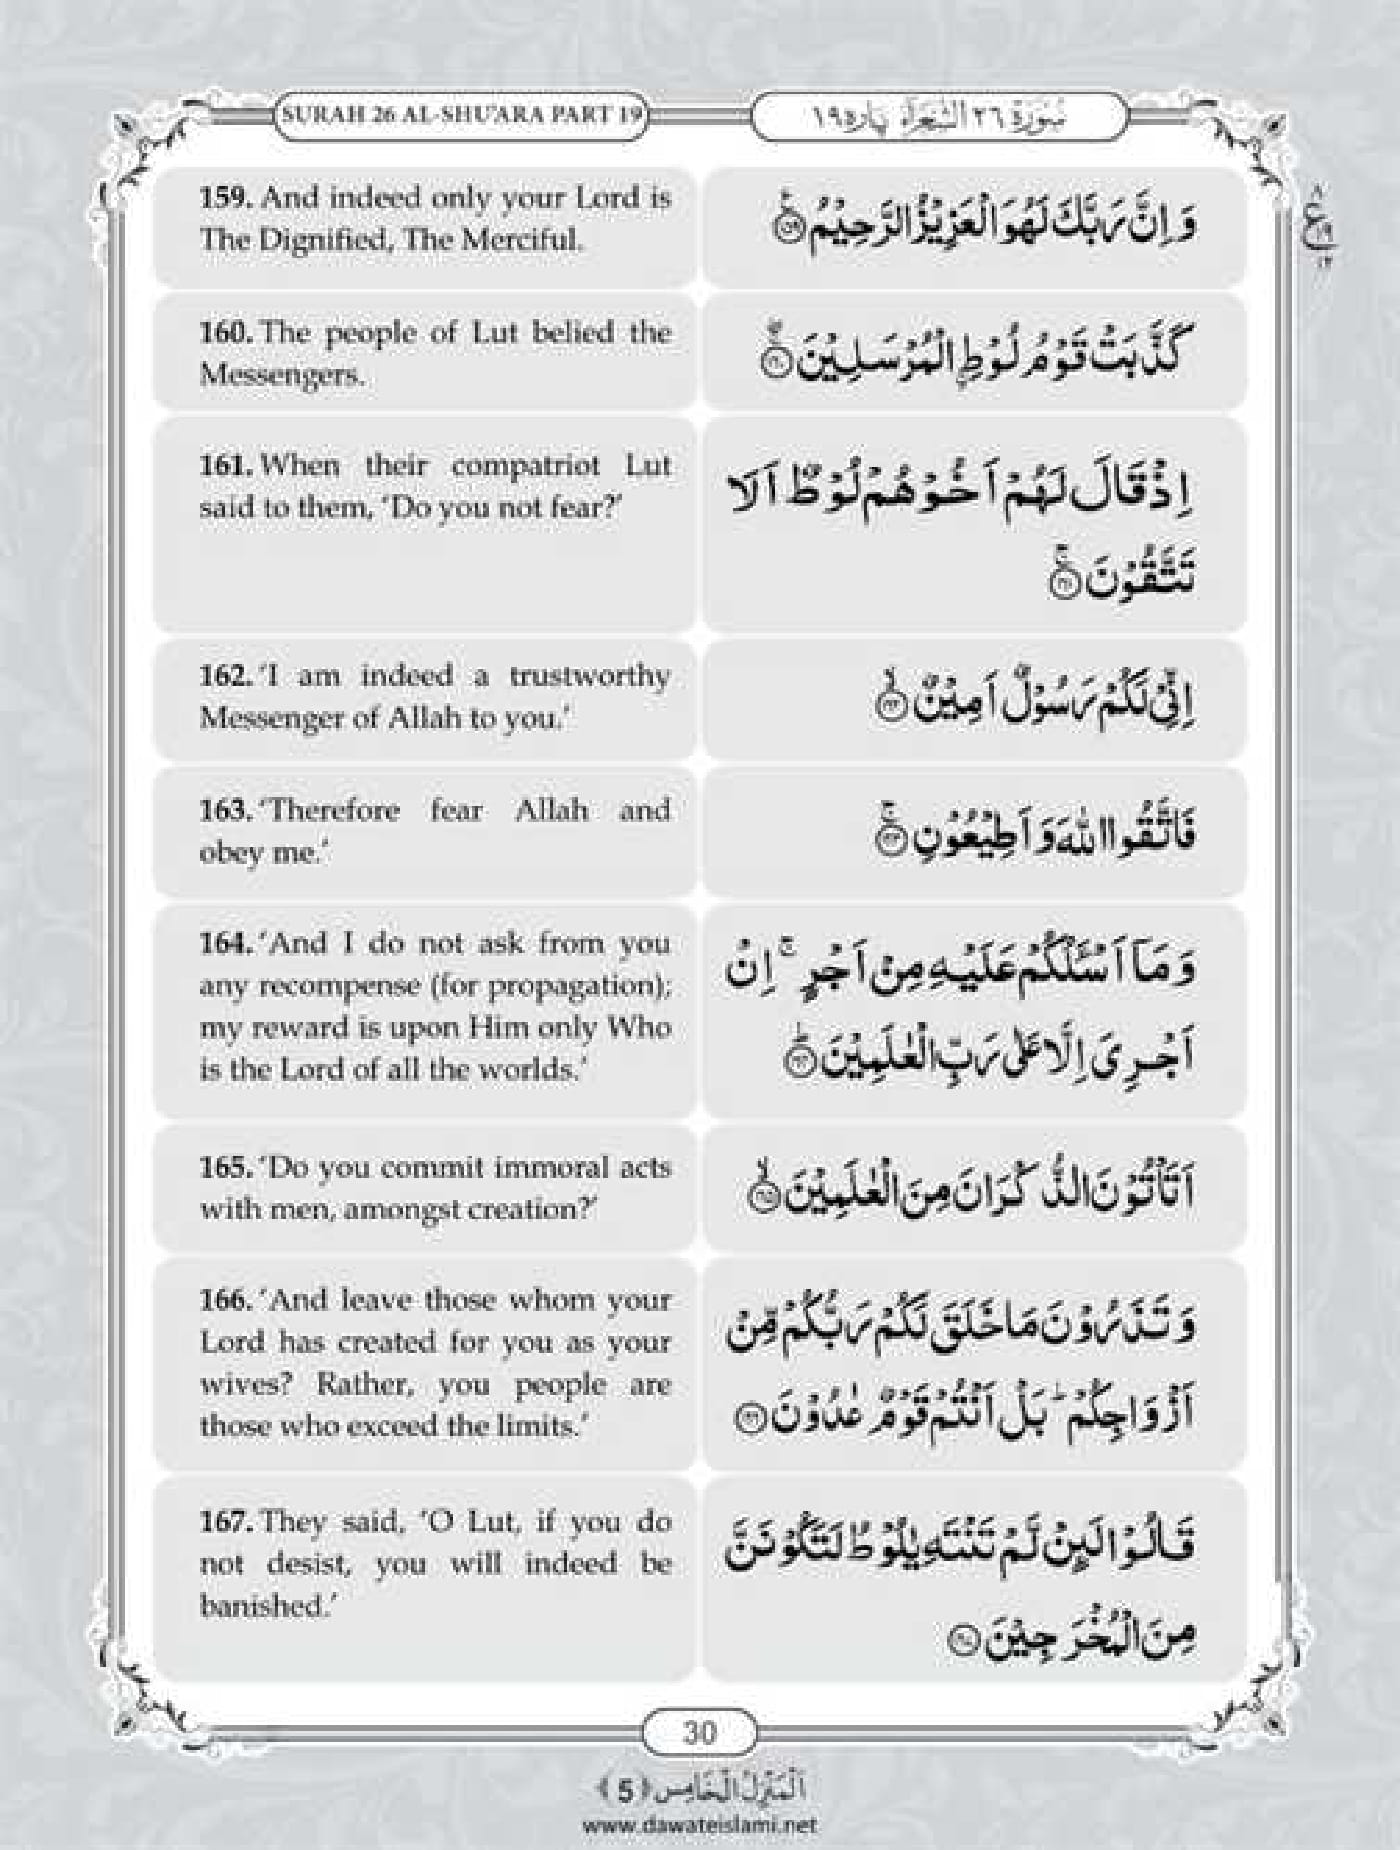 SURAH 26 AL-SHU'ARA PART 19
سُوْرَةُ ٢٦ الشُّعَرَآء پاره ١٩
159. And indeed only your Lord is
The Dignified, The Merciful.
وَ اِنَّ رَبَّكَ لَهُوَ الْعَزِیْزُ الرَّحِیْمُ ﴿۱۵۹﴾
160. The people of Lut belied the
Messengers.
كَذَّبَتْ قَوْمُ لُوْطِ ِالْمُرْسَلِیْنَ ﴿۱۶۰﴾
161. When their compatriot Lut
said to them, ‘Do you not fear?’
اِذْ قَالَ لَهُمْ اَخُوْهُمْ لُوْطٌ اَلَا
تَتَّقُوْنَ ﴿۱۶۱﴾
162. ‘I am indeed a trustworthy
Messenger of Allah to you.’
اِنِّیْ لَكُمْ رَسُوْلٌ اَمِیْنٌ ﴿۱۶۲﴾
163. ‘Therefore fear Allah and
obey me.’
فَاتَّقُوا اللّٰهَ وَ اَطِیْعُوْنِ ﴿۱۶۳﴾
164. ‘And I do not ask from you
any recompense (for propagation);
my reward is upon Him only Who
is the Lord of all the worlds.’
وَ مَاۤ اَسْـَٔلُكُمْ عَلَیْهِ مِنْ اَجْرٍ ۚ اِنْ
اَجْرِیَ اِلَّا عَلٰى رَبِّ الْعٰلَمِیْنَ ﴿۱۶۴﴾
165. ‘Do you commit immoral acts
with men, amongst creation?’
اَتَاْتُوْنَ الذُّكْرَانَ مِنَ الْعٰلَمِیْنَ ﴿۱۶۵﴾
166. ‘And leave those whom your
Lord has created for you as your
wives? Rather, you people are
those who exceed the limits.’
وَ تَذَرُوْنَ مَا خَلَقَ لَكُمْ رَبُّكُمْ مِّنْ
اَزْوَاجِكُمْ ؕ بَلْ اَنْتُمْ قَوْمٌ عٰدُوْنَ ﴿۱۶۶﴾
167. They said, ‘O Lut, if you do
not desist, you will indeed be
banished.’
قَالُوْا لَىِٕنْ لَّمْ تَنْتَهِ یٰلُوْطُ لَتَكُوْنَنَّ
مِنَ الْمُخْرَجِیْنَ ﴿۱۶۷﴾
30
اَلْمَنْزِلُ الْخَامِس ﴿5﴾
www.dawateislami.net